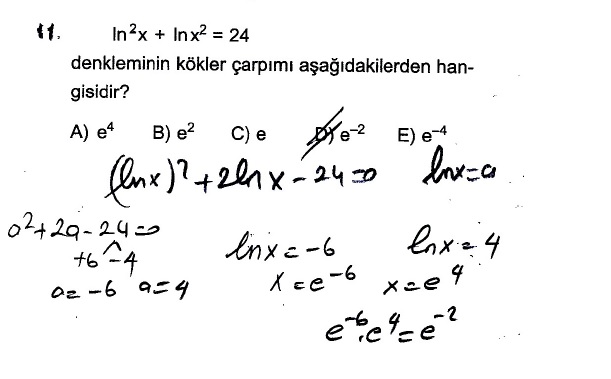 11. ln²x + lnx² = 24
denkleminin kökler çarpımı aşağıdakilerden han-
gisidir?
A) e⁴ B) e² C) e D) e⁻² E) e⁻⁴
(lnx)² + 2lnx - 24 = 0 lnx = a
a² + 2a - 24 = 0
+6 -4
a = -6 a = 4
lnx = -6 lnx = 4
x = e⁻⁶ x = e⁴
e⁻⁶ . e⁴ = e⁻²